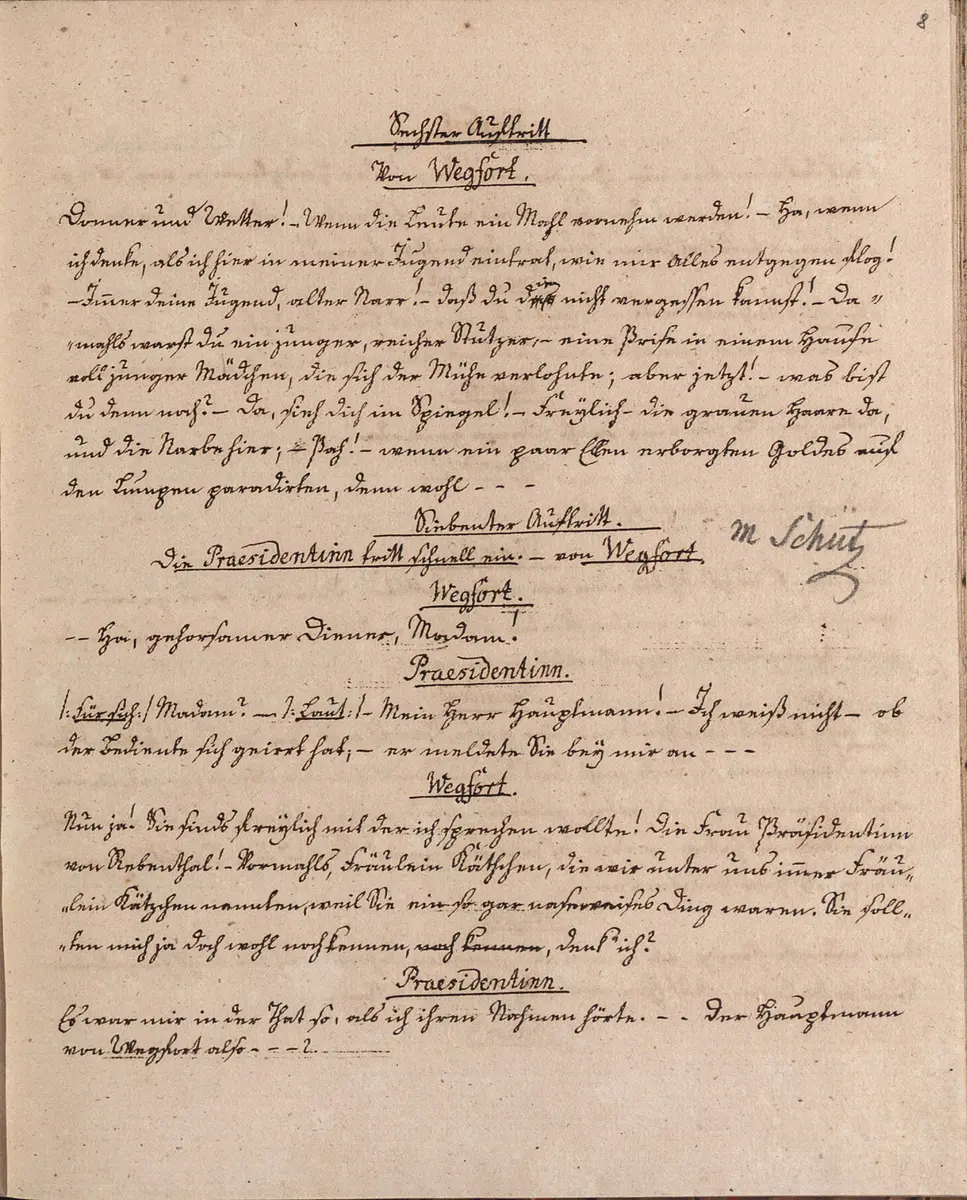 8
Sechster Auftritt
Von Wegfort.
Donner und Wetter! – Wenn die Leute ein Mahl vornehm werden! – Ha, wenn
ich denke, als ich hier in meiner Jugend eintrat, wie mir Alles entgegen flog!
– Immer deine Jugend, alter Narr! – daß du die nicht vergessen kannst! – Da-
mahls warst du ein junger, reicher Stutzer, – eine Prise in einem Haufe
voll junger Mädchen, die sich der Mühe verlohnte; aber jetzt! – was bist
du denn noch? – Da, sieh dich im Spiegel! – Freylich – die grauen Haare da,
und die Narbe hier; – Pah! – wenn ein paar Ellen erborgten Goldes auf
den Lumpen paradirten, denn wohl - - -
Siebenter Auftritt.
M Schütz
Die Praesidentinn tritt schnell ein. – von Wegfort.
Wegfort.
-- Ha, gehorsamer Diener, Madam!
Praesidentinn.
/: Für sich :/ Madam? – /: Laut :/ – Mein Herr Hauptmann! – Ich weiß nicht – ob
der Bediente sich geirrt hat; – er meldete Sie bey mir an - - -
Wegfort.
Nun ja! Sie sinds freylich mit der ich sprechen wollte! Die Frau Präsidentinn
von Rebenthal! – Vormahls, Fräulein Käthchen, die wir unter uns immer Fräu-
lein Kätzchen nannten, weil Sie ein so gar naseweises Ding waren. Sie soll-
ten mich ja doch wohl noch kennen, noch kennen, denk ich?
Praesidentinn.
Es war mir in der That so, als ich ihren Nahmen hörte. - - Der Hauptmann
von Wegfort also - - - ?